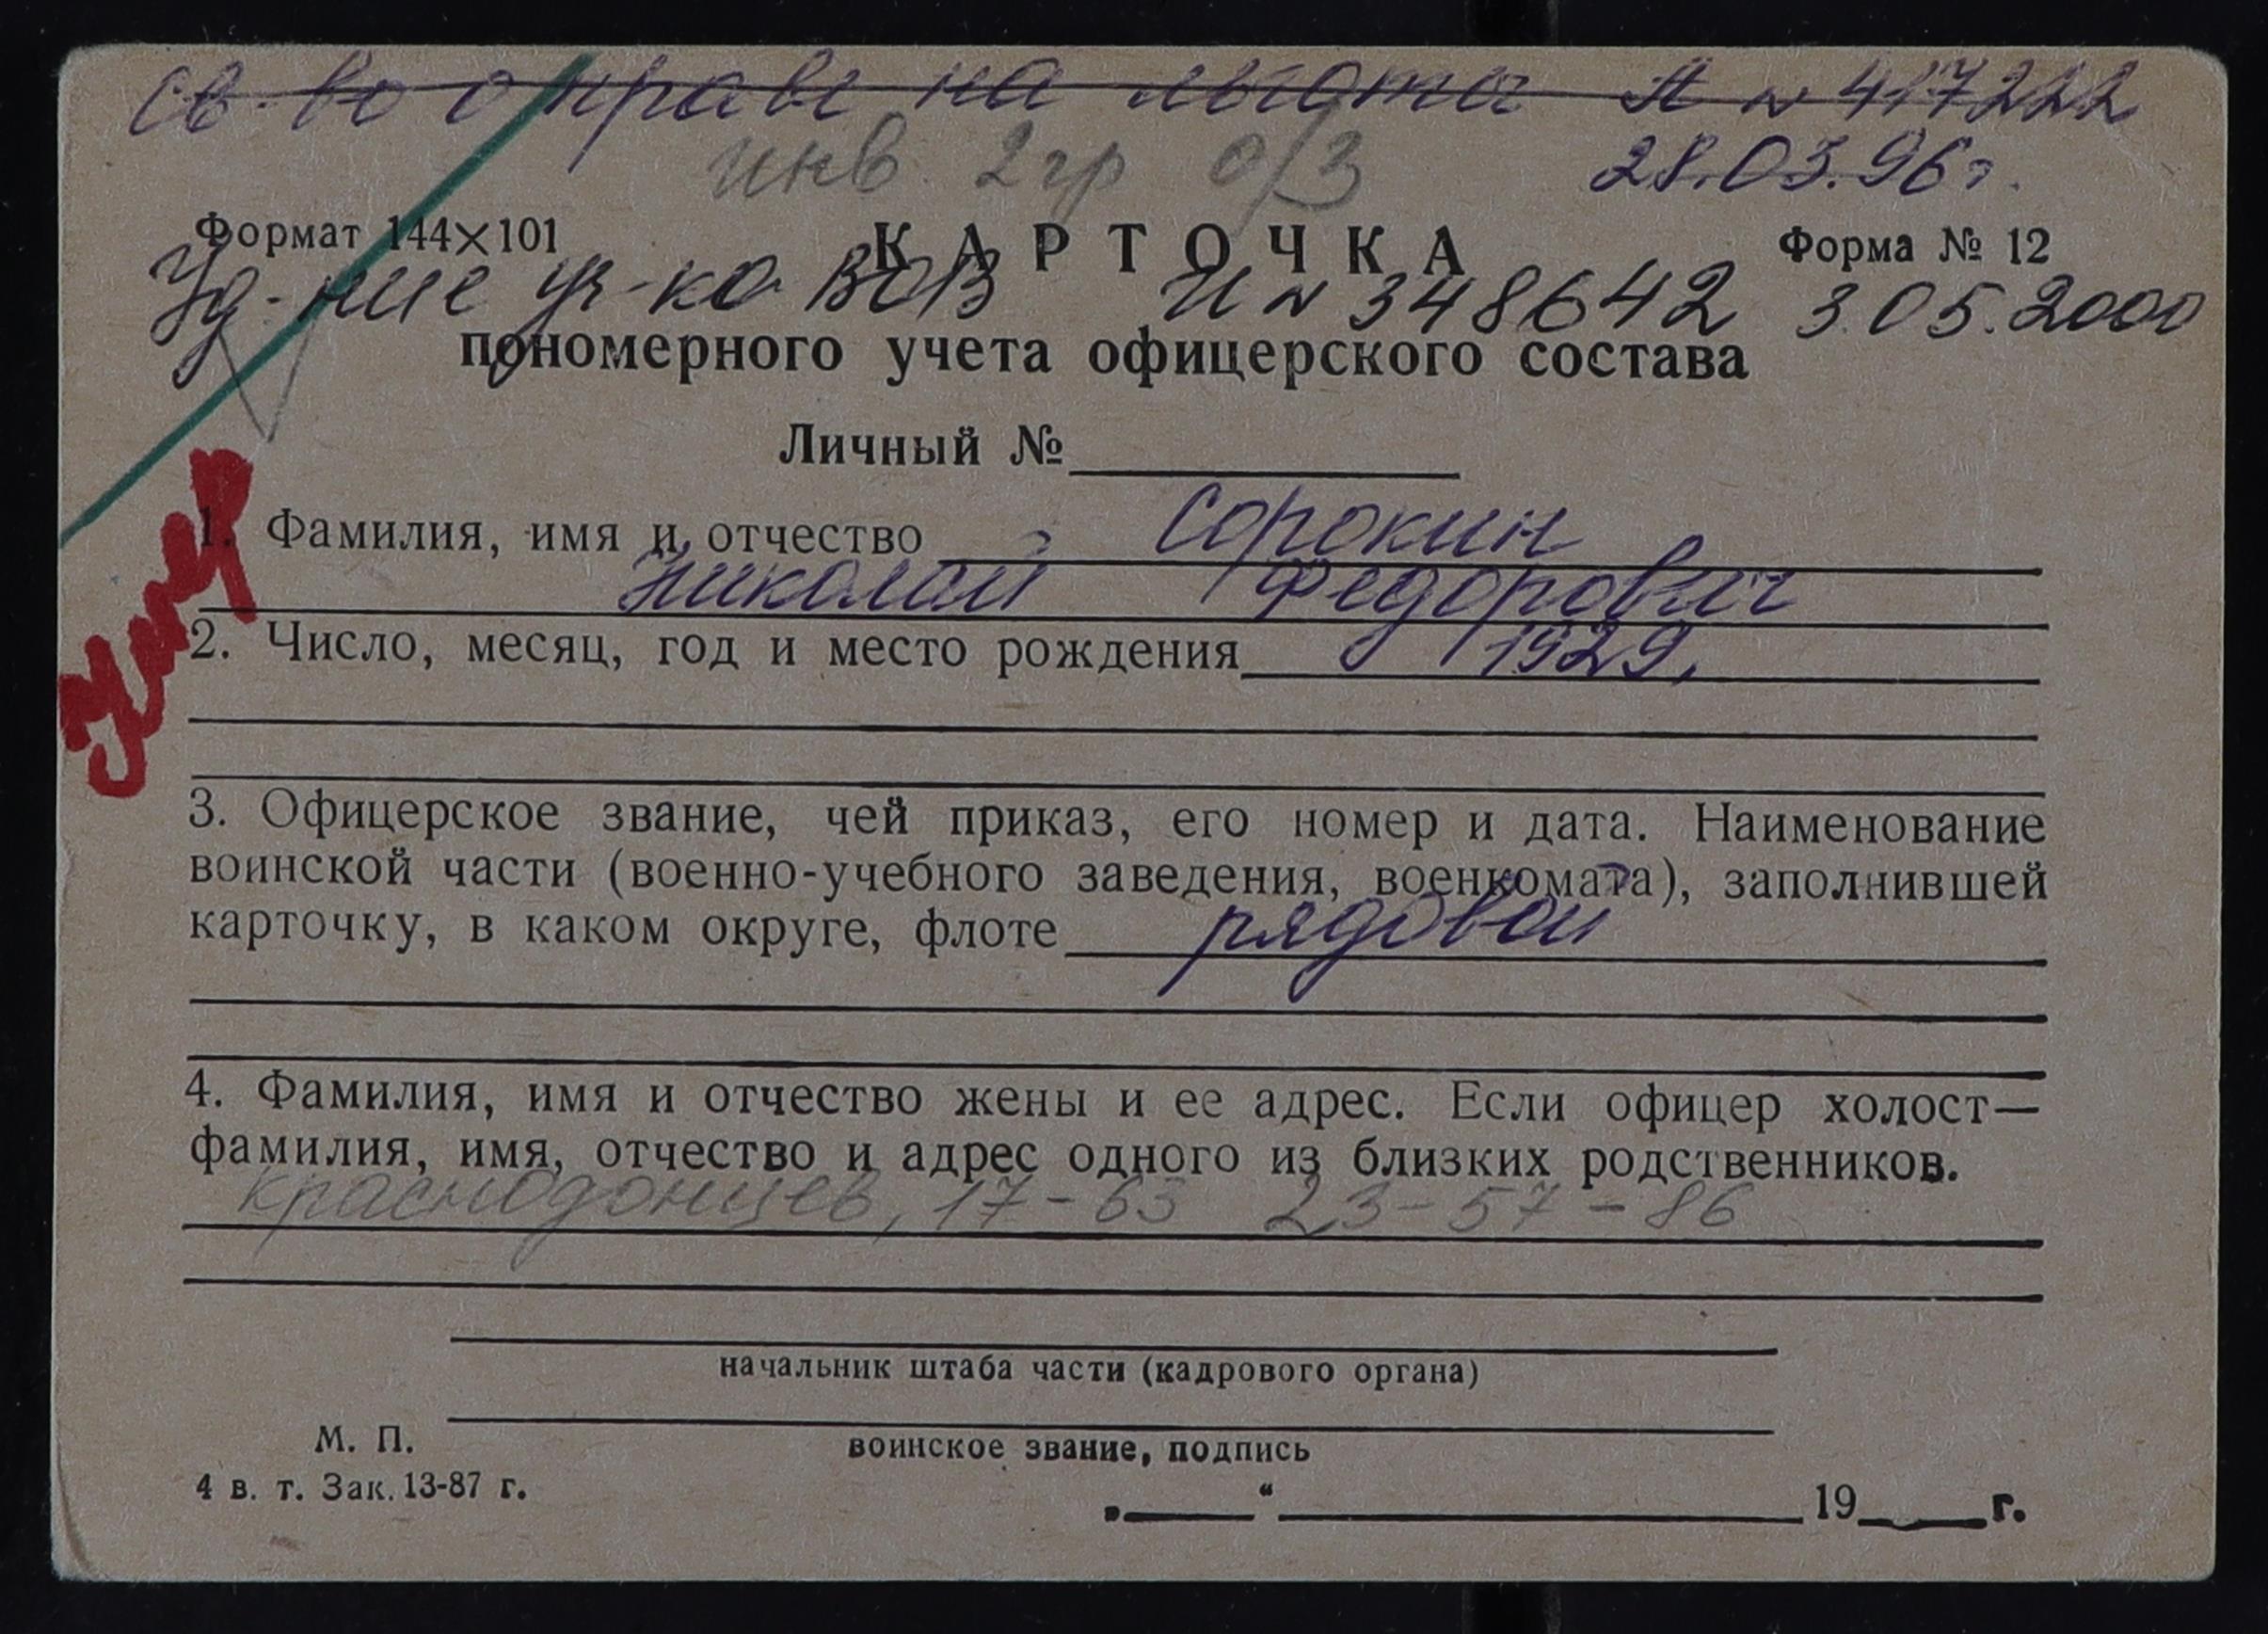 св-во о праве на льготы А № 417222
инв. 2 гр о/з 28.03.96 г.
Формат 144×101 КАРТОЧКА Форма № 12
Уд-ние уч-ка ВОВ И № 348642 3.05.2000
пономерного учета офицерского состава
Личный №
Умер
1. Фамилия, имя и отчество Сорокин
Николай Федорович
2. Число, месяц, год и место рождения 1929.
3. Офицерское звание, чей приказ, его номер и дата. Наименование
воинской части (военно-учебного заведения, военкомата), заполнившей
карточку, в каком округе, флоте рядовой
4. Фамилия, имя и отчество жены и ее адрес. Если офицер холост—
фамилия, имя, отчество и адрес одного из близких родственников.
Краснодонцев, 17-63 23-57-86
начальник штаба части (кадрового органа)
М. П.
воинское звание, подпись
4 в. т. Зак. 13-87 г.
„ “ 19 г.